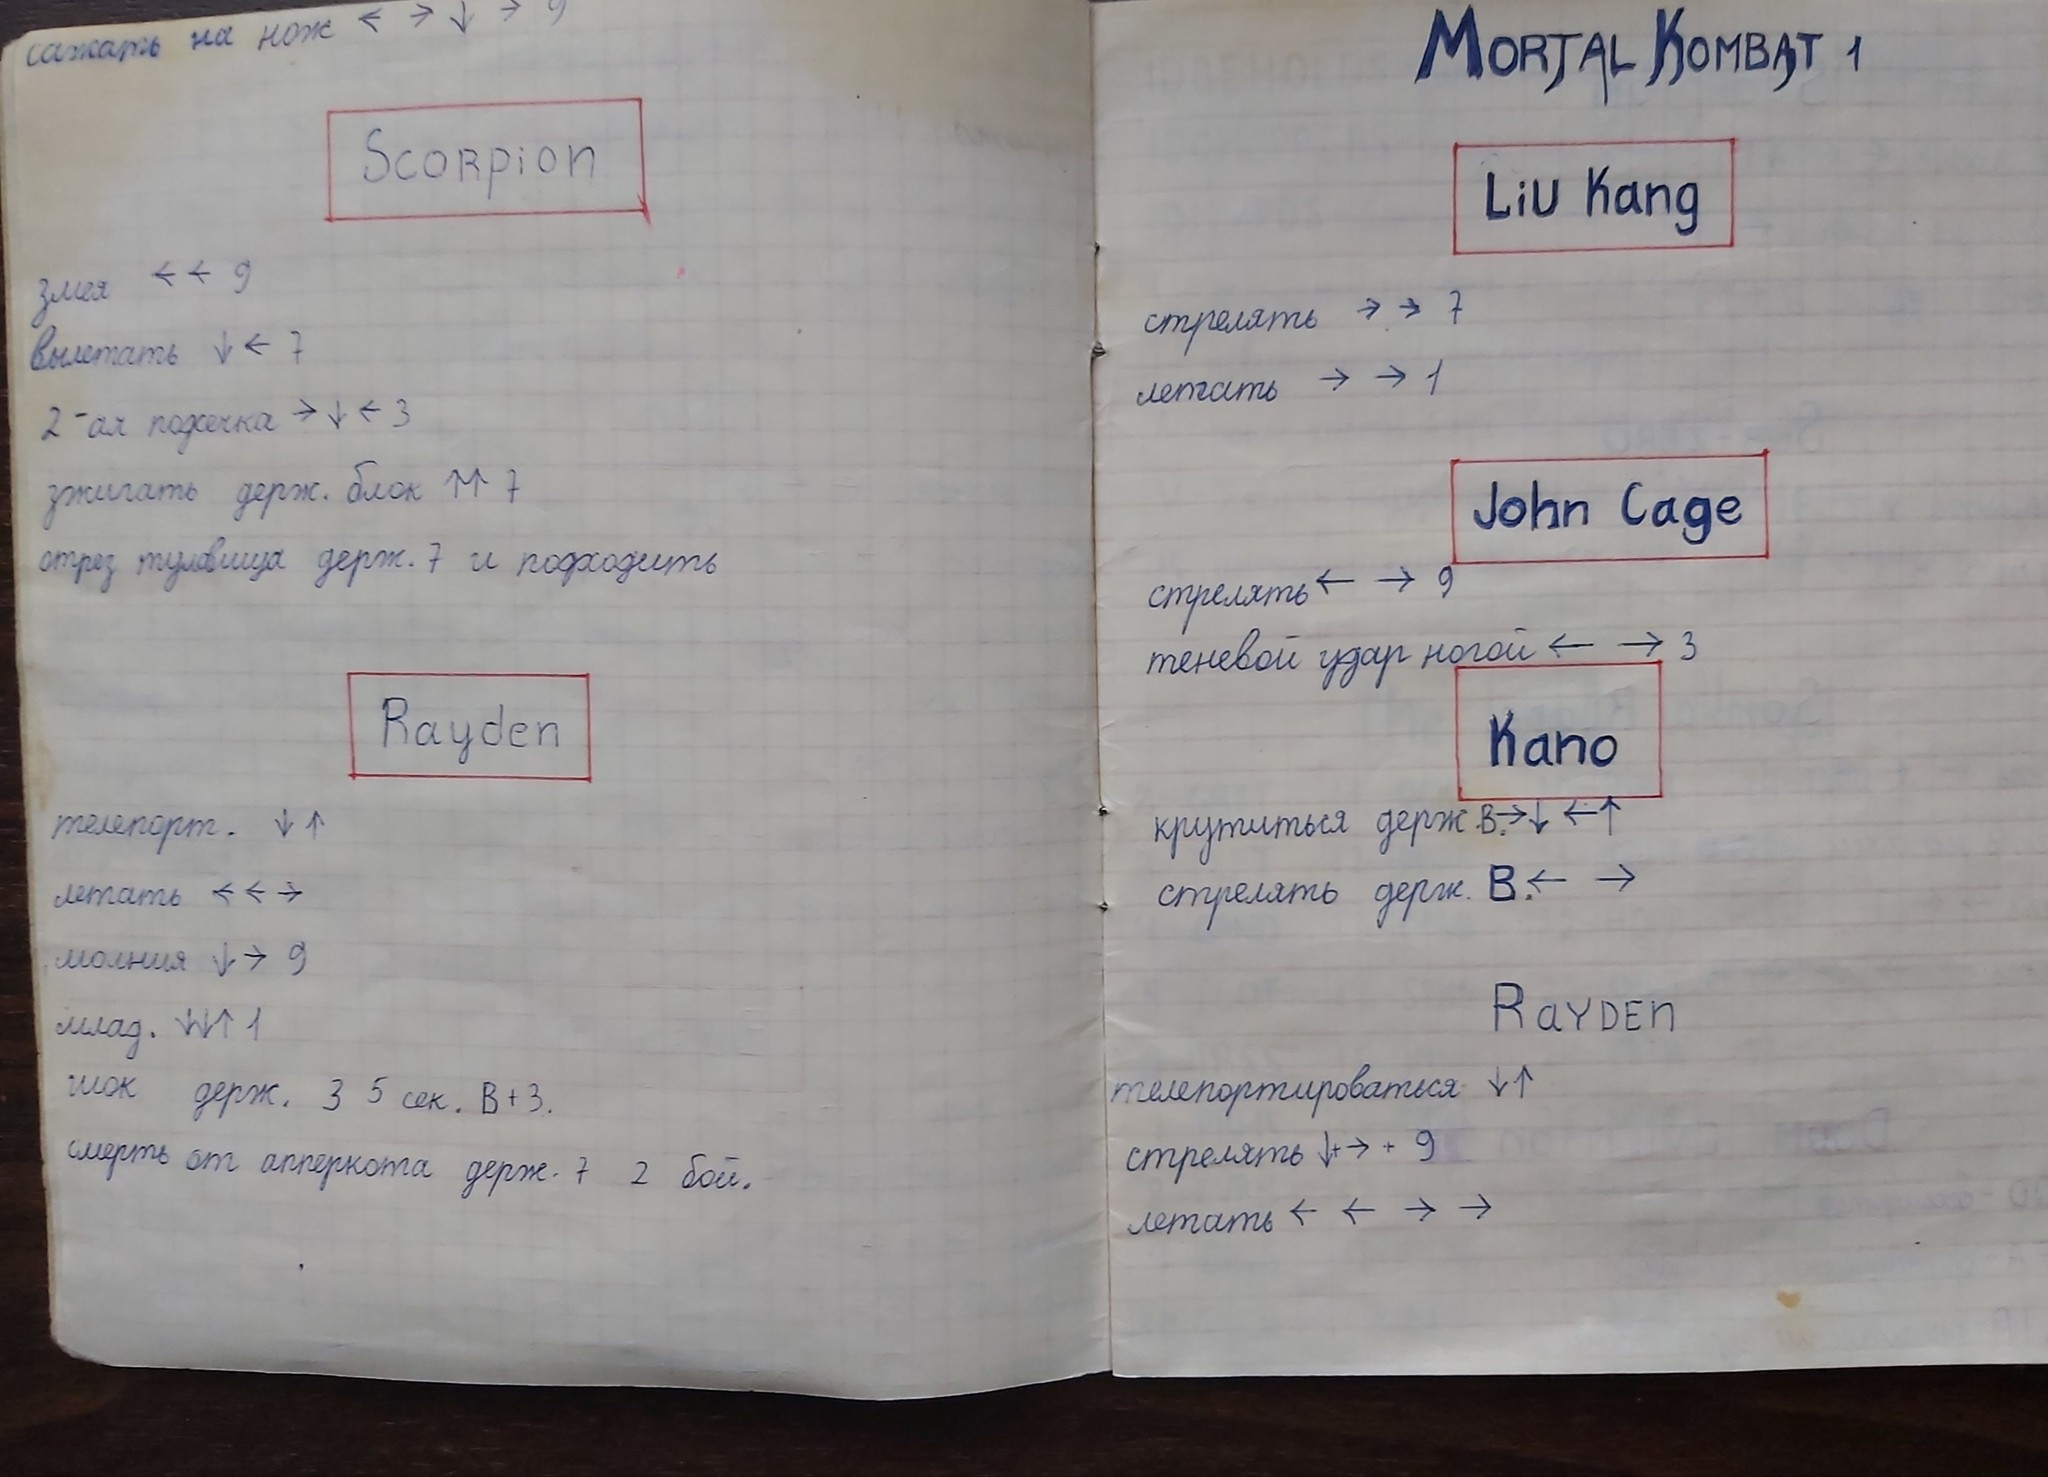 сажать на нож ← → ↓ → 9
Scorpion
змея ← ← 9
вылетать ↓ ← 7
2-ая подсечка → ↓ ← 3
зжигать держ. блок ↑↑ 7
отрез туловища держ. 7 и подходить
Rayden
телепорт. ↓ ↑
летать ← ← →
молния ↓ → 9
млад. ↓↓↑ 1
шок держ. 3 5 сек. B+3.
смерть от апперкота держ. 7 2 бой.
MORTAL KOMBAT 1
Liu Kang
стрелять → → 7
летать → → 1
John Cage
стрелять ← → 9
теневой удар ногой ← → 3
Kano
крутиться держ. В. → ↓ ← ↑
стрелять держ. В. ← →
RAYDEN
телепортироваться ↓↑
стрелять ↓+→ + 9
летать ← ← → →